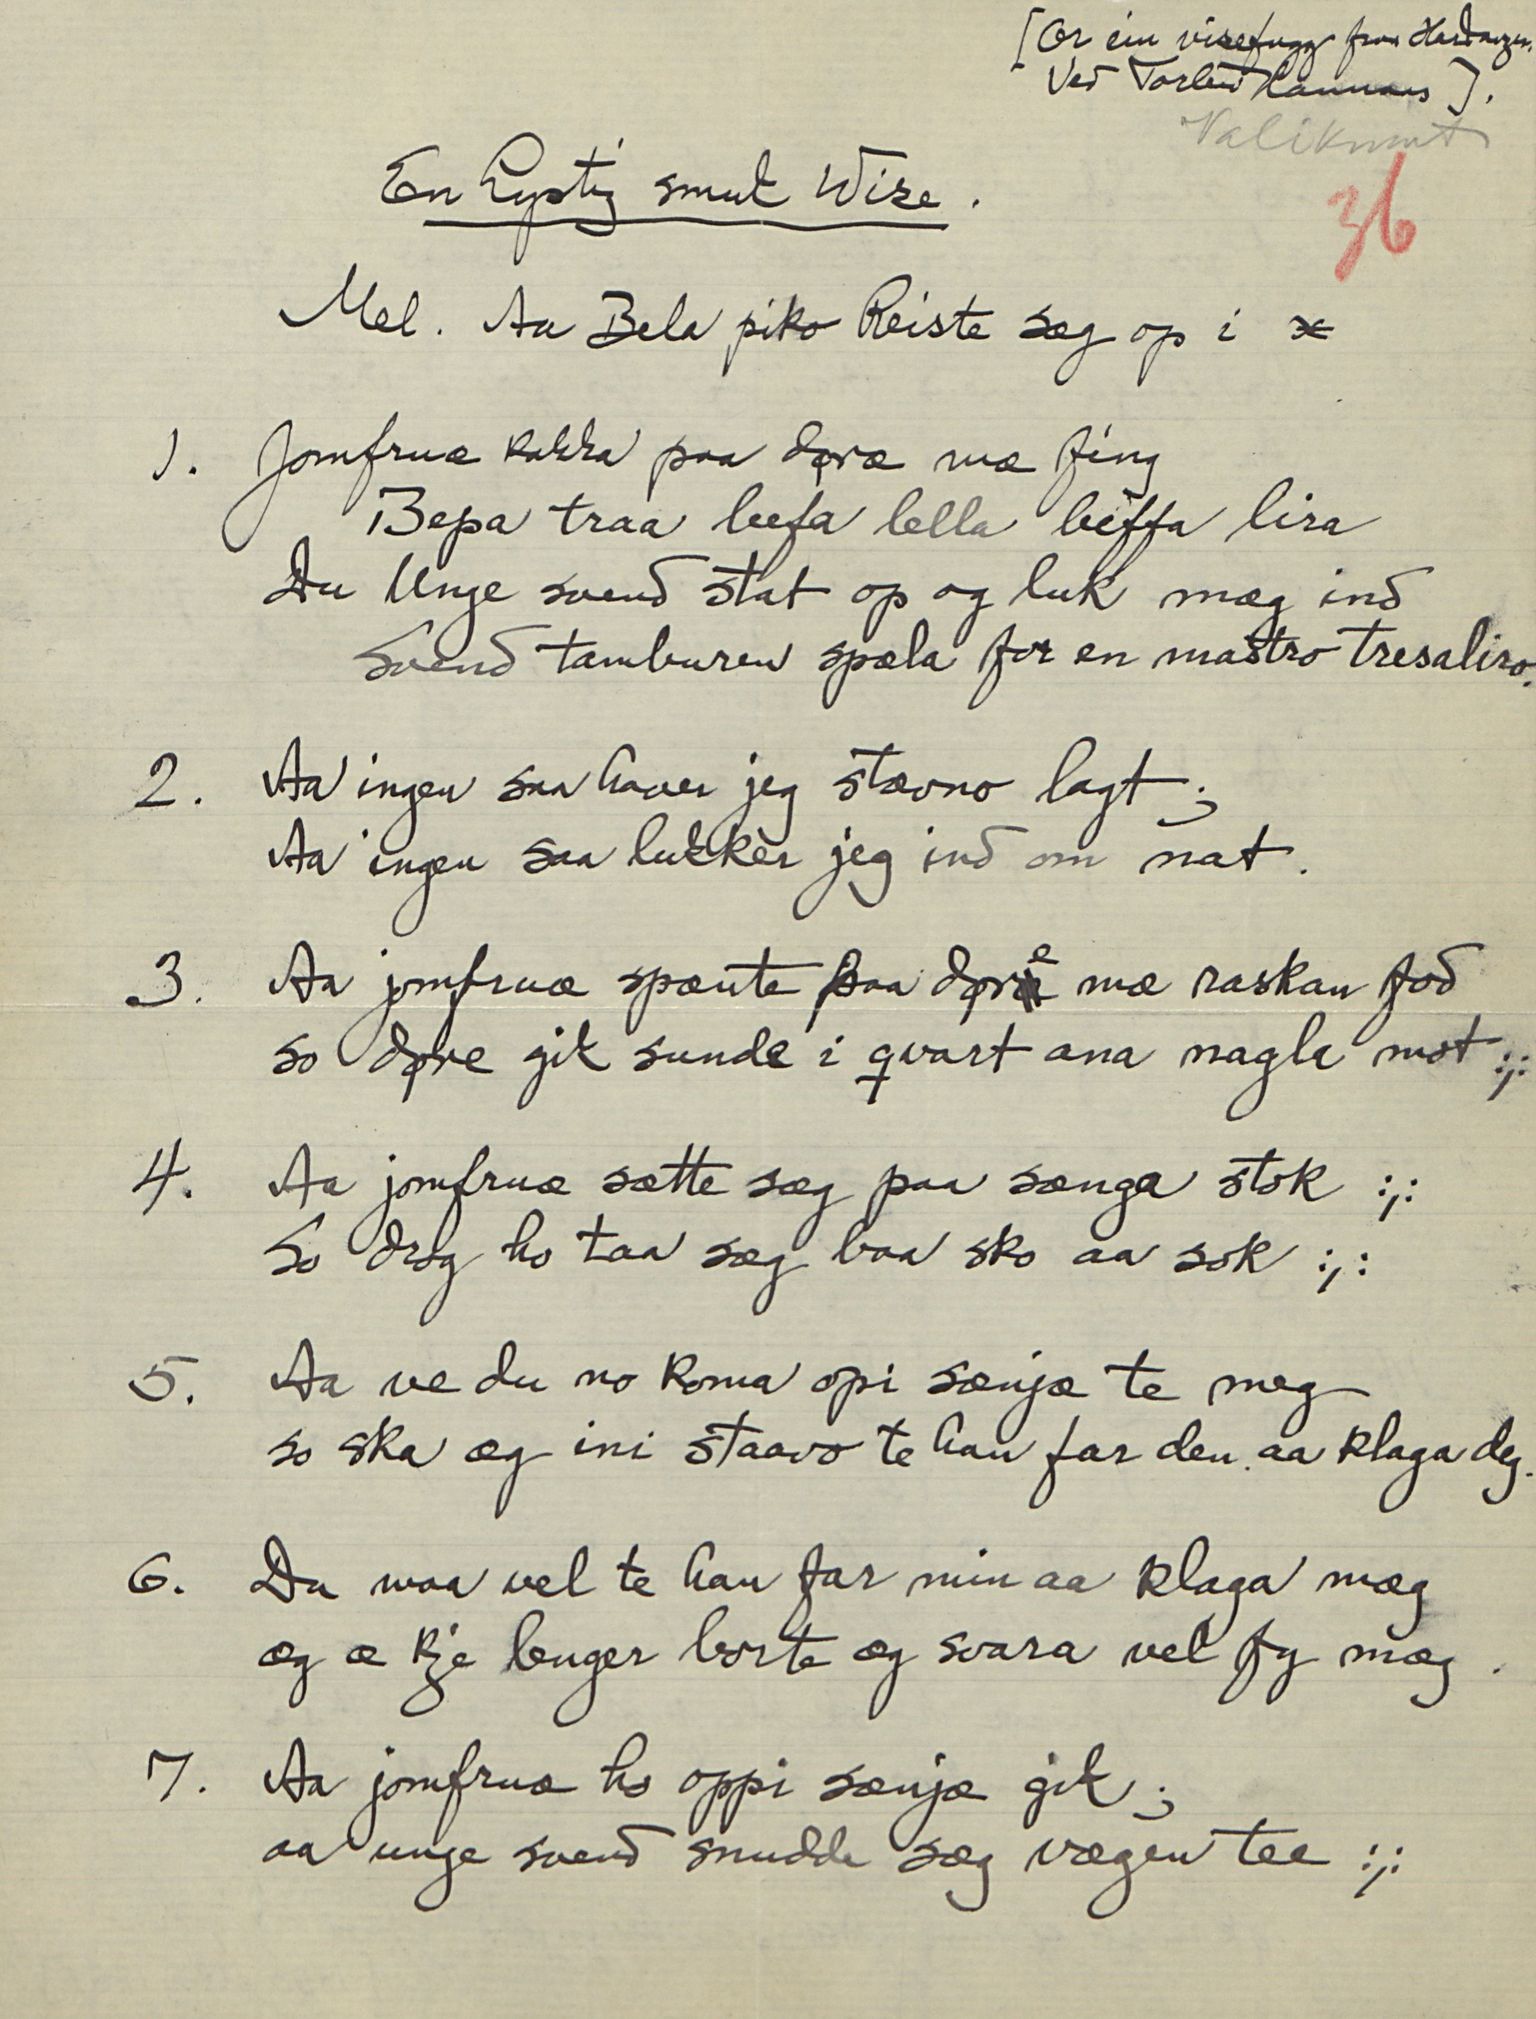 [Or ein visefugg fraa Hardanger.
Ved Torleiv Hannaas].
36
En Lystig smuk Wise.
Mel. Aa Bela piko Reiste sæg op i
1. Jomfruæ rakka paa døræ mæ fing
Bepa traa leefa lella beffa lira
Du Unge svend stat op og luk mæg ind
Svend tamburen spæla for en mastro tresaliro.
2. Aa ingen saa haver jeg stævno lagt ;
Aa ingen saa lukker jeg ind om nat.
3. Aa jomfruæ spænte paa døre mæ raskan fod
so døre gik sunde i qvart ana nagla mot :;:
4. Aa jomfruæ sætte sæg paa sænga stok :;:
So drog ho taa sæg baa sko aa sok :;:
5. Aa ve du no koma opi sænjæ te mæg
so ska æg ini staavo te han far den aa klaga deg.
6. Du maa vel te han far min aa klaga mæg
æg æ kje lenger borte æg svara vel fy mæg.
7. Aa jomfruæ ho oppi sænjæ gik ;
aa unge svend snudde sæg vægen tee :;: